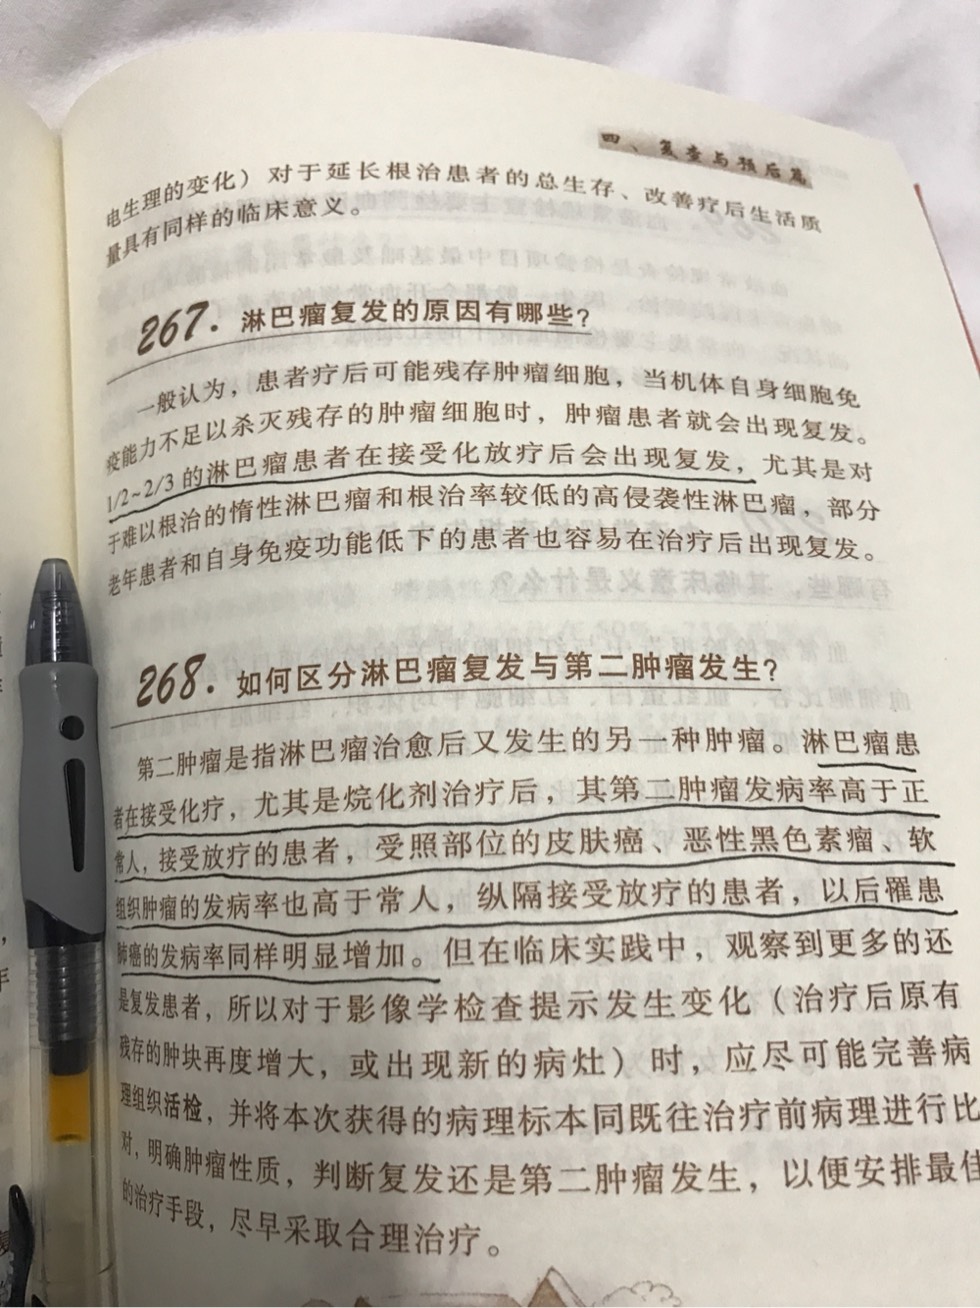 四、复查与预后篇
电生理的变化）对于延长根治患者的总生存、改善疗后生活质
量具有同样的临床意义。
267. 淋巴瘤复发的原因有哪些？
一般认为，患者疗后可能残存肿瘤细胞，当机体自身细胞免
疫能力不足以杀灭残存的肿瘤细胞时，肿瘤患者就会出现复发。
1/2~2/3 的淋巴瘤患者在接受化放疗后会出现复发，尤其是对
于难以根治的惰性淋巴瘤和根治率较低的高侵袭性淋巴瘤，部分
老年患者和自身免疫功能低下的患者也容易在治疗后出现复发。
268. 如何区分淋巴瘤复发与第二肿瘤发生？
第二肿瘤是指淋巴瘤治愈后又发生的另一种肿瘤。淋巴瘤患
者在接受化疗，尤其是烷化剂治疗后，其第二肿瘤发病率高于正
常人，接受放疗的患者，受照部位的皮肤癌、恶性黑色素瘤、软
组织肿瘤的发病率也高于常人，纵隔接受放疗的患者，以后罹患
肺癌的发病率同样明显增加。但在临床实践中，观察到更多的还
是复发患者，所以对于影像学检查提示发生变化（治疗后原有
残存的肿块再度增大，或出现新的病灶）时，应尽可能完善病
理组织活检，并将本次获得的病理标本同既往治疗前病理进行比
对，明确肿瘤性质，判断复发还是第二肿瘤发生，以便安排最佳
的治疗手段，尽早采取合理治疗。